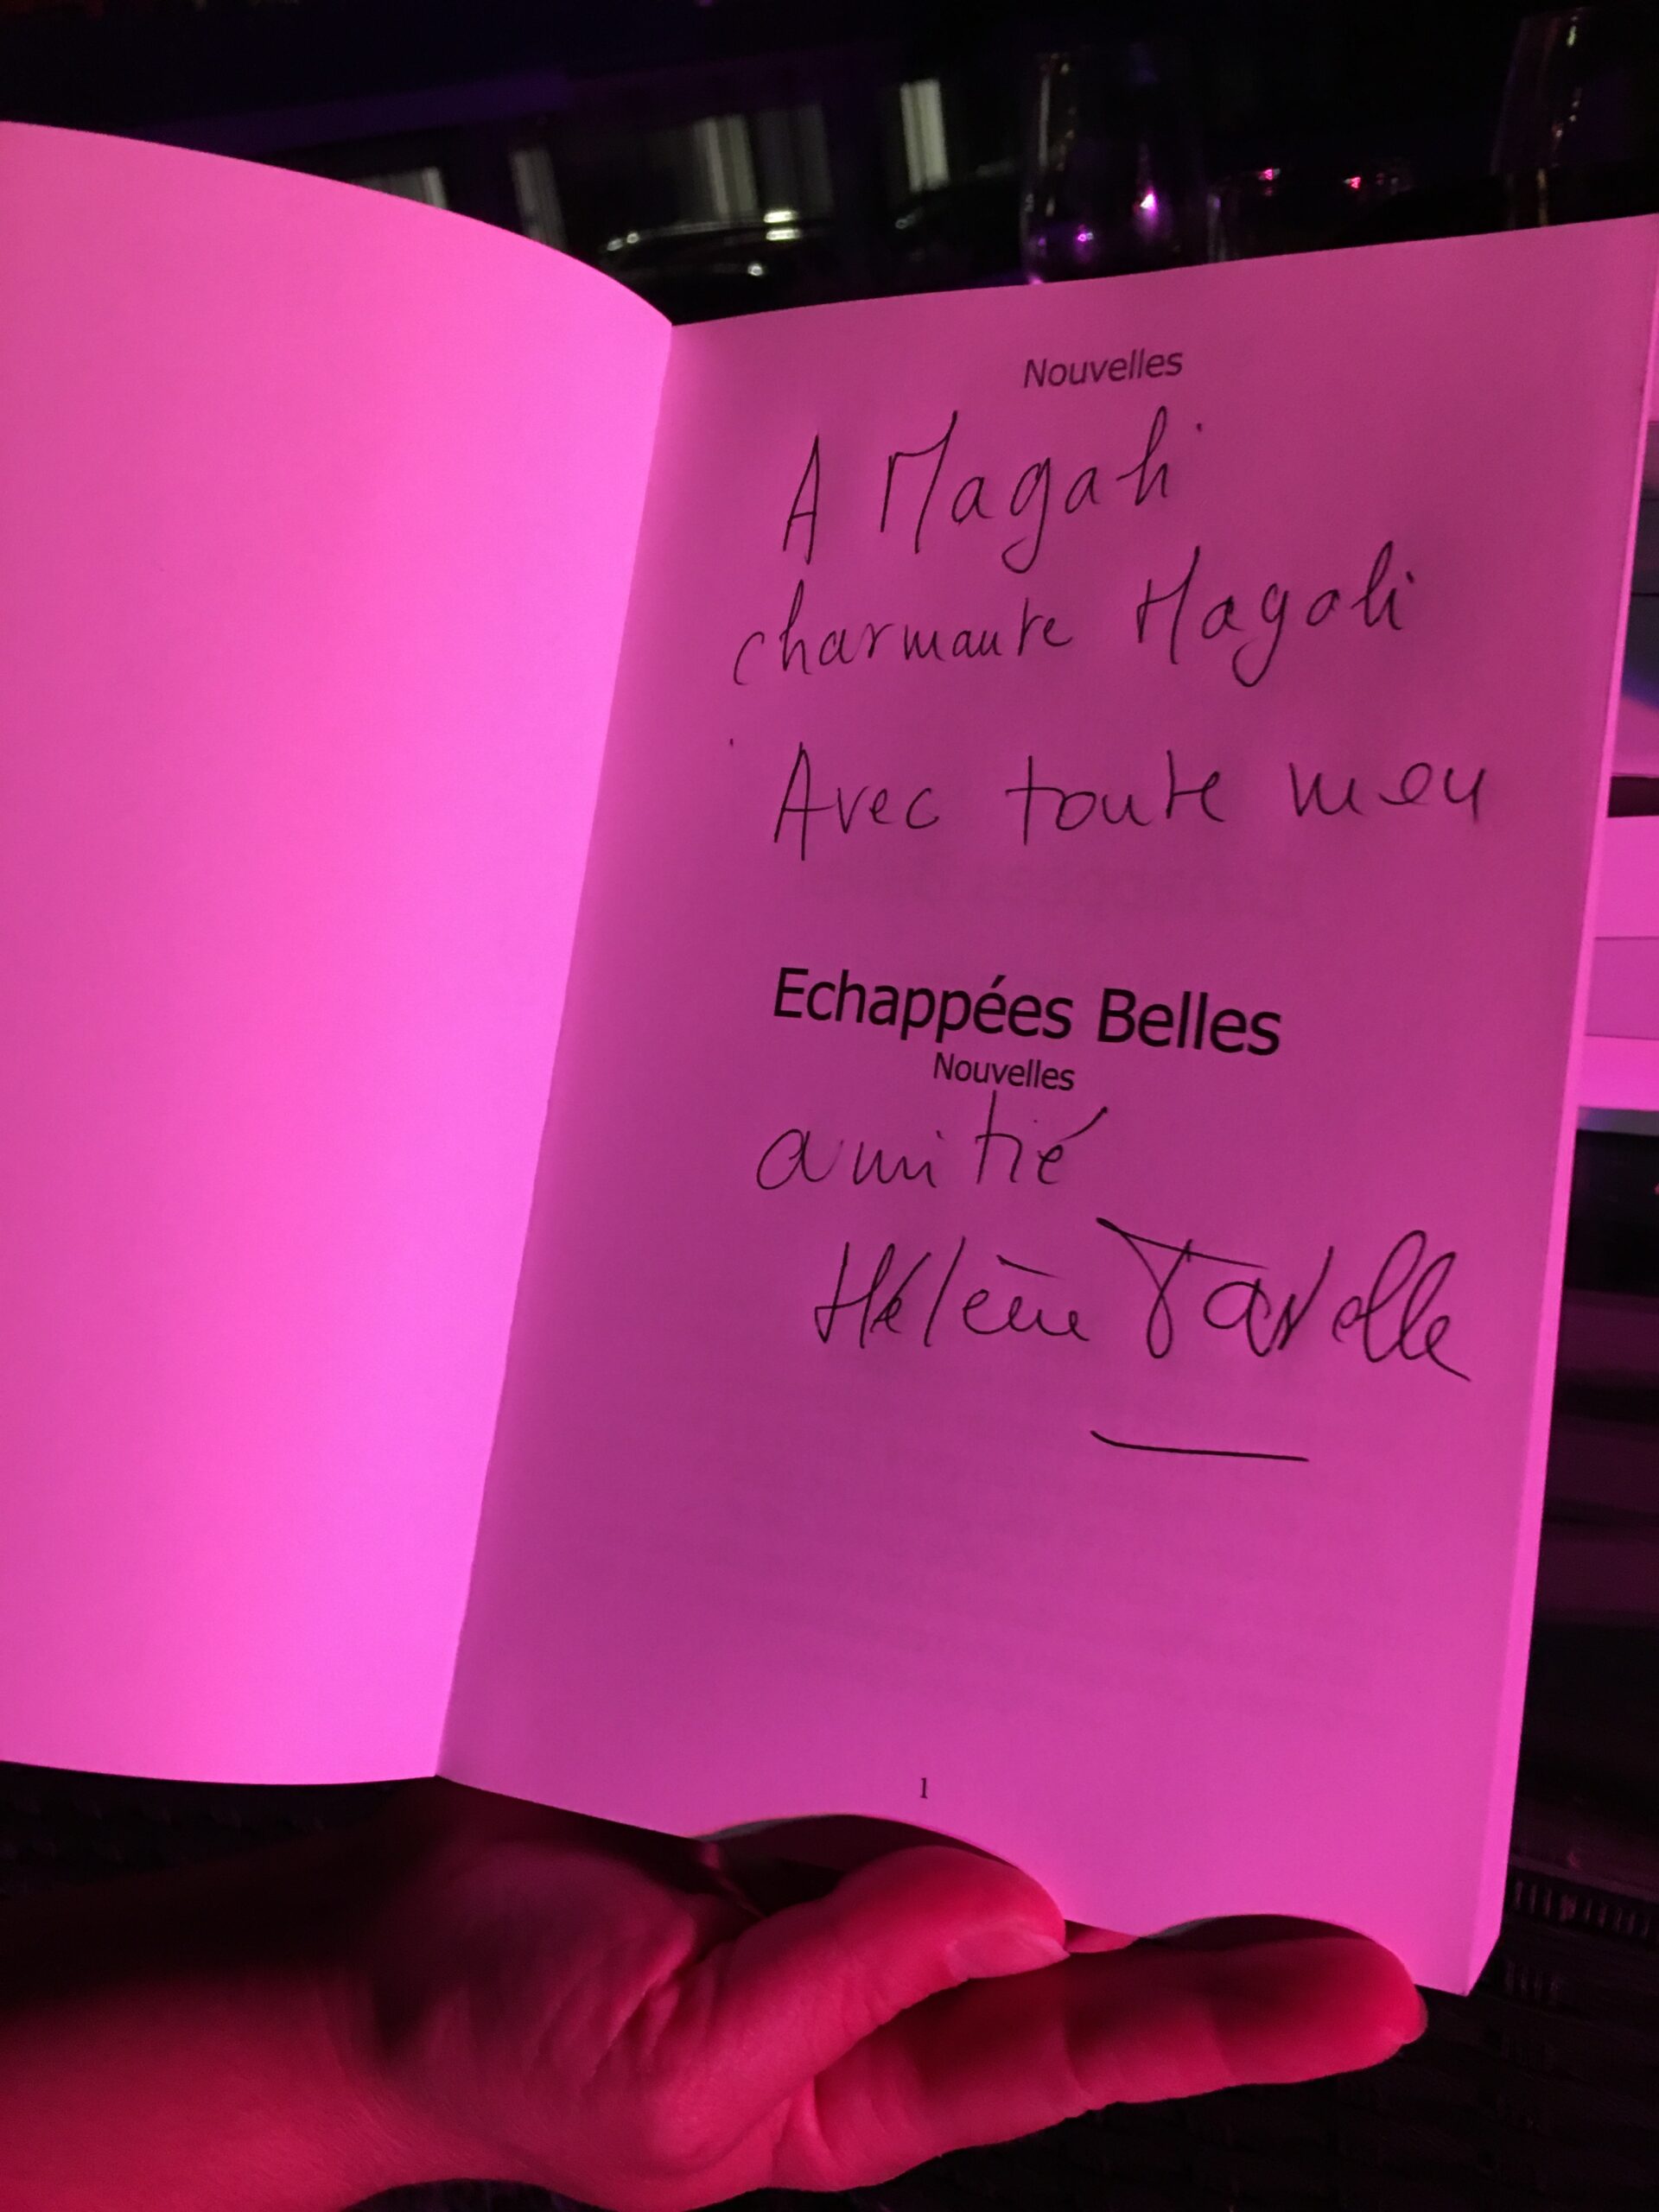 Nouvelles
A Magali
charmante Magali
Avec toute mon
Echappées Belles
Nouvelles
amitié
Hélène Tavelle
1